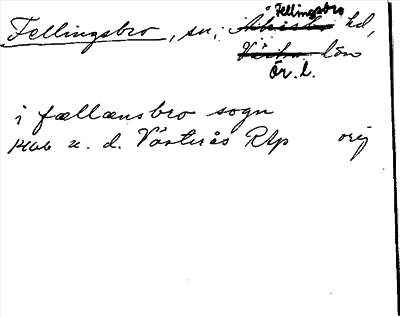 Fellingsbro, sn; Fellingsbro hd,
Västm. län
Ör. l.
i fællænsbro sogn
1466 u. d. Västerås Rtp orig